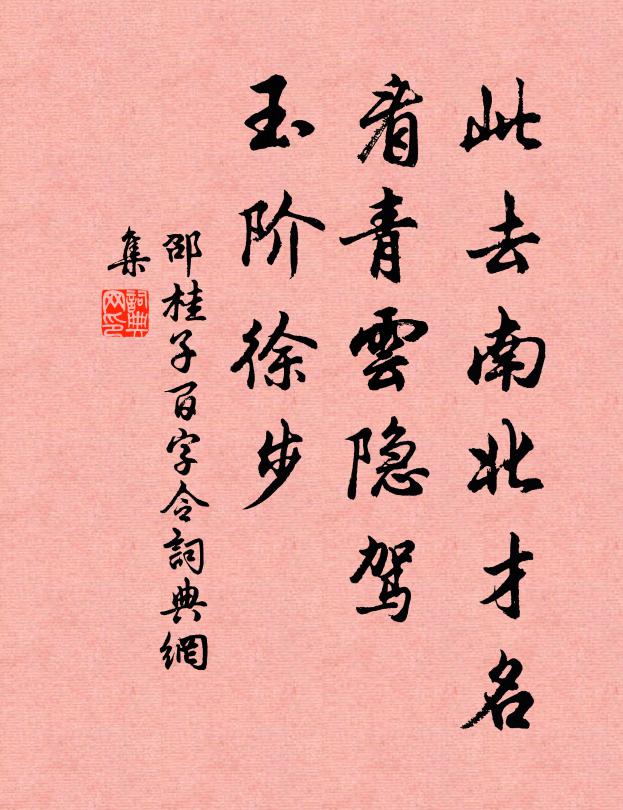 此去南北才名
看青雲隐驾
玉阶徐步
邵桂子百字令詞典網
集
詞典网印